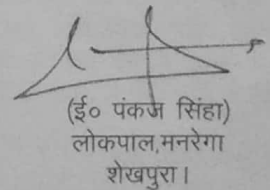 (ई० पंकज सिंहा)
लोकपाल,मनरेगा
शेखपुरा।